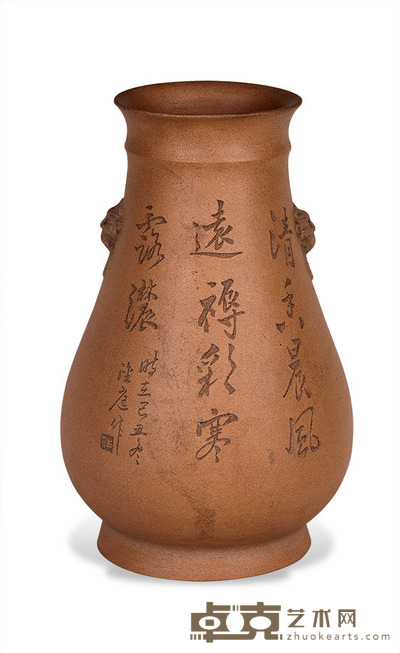 清香晨風
遠褥彩寒
露濃
時在己丑冬
庭作
卓克艺术网
zhuokearts.com